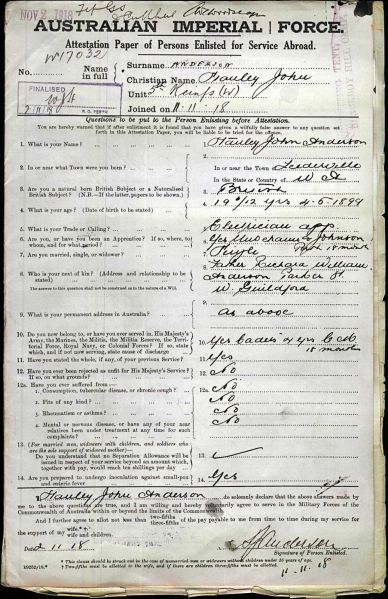 AUSTRALIAN IMPERIAL FORCE.
Attestation Paper of Persons Enlisted for Service Abroad.
No. W17032
Name in full
Surname ANDERSON
Christian Name Hanley John
Unit
Joined on 11.11.18
FINALISED
R.O. PERTH
Questions to be put to the Person Enlisting before Attestation.
You are hereby warned that if after enlistment it is found that you have given a wilfully false answer to any question set
forth in this Attestation Paper, you will be liable to be tried for the offence.
1. What is your Name? 1. Hanley John Anderson
2. In or near what Town were you born? In or near the Town
in the State or Country of W A
3. Are you a natural born British Subject or a Naturalised
British Subject? (N.B.—If the latter, papers to be shown). 3. British
4. What is your age? (Date of birth to be stated) 4. 19 6/12 yrs 4.5.1899
5. What is your Trade or Calling? 5. app
6. Are you, or have you been an Apprentice? If so, where, to
whom, and for what period? 6. Yes Johnson
7. Are you married, single, or widower? 7. Single
8. Who is your next of kin? (Address and relationship to be
stated) 8. Father Richard William
Anderson Parker St
The answer to this question shall not be construed as in the nature of a Will.
W. Guildford
9. What is your permanent address in Australia? 9. as above
10. Do you now belong to, or have you ever served in, His Majesty's
Army, the Marines, the Militia, the Militia Reserve, the Ter-
ritorial Force, Royal Navy, or Colonial Forces? If so, state
which, and if not now serving, state cause of discharge 10. Yes Cadets 4 yrs
18 months
11. Have you stated the whole, if any, of your previous Service? 11. Yes
12. Have you ever been rejected as unfit for His Majesty's Service?
If so, on what grounds? 12. No
12a. Have you ever suffered from—
1. Consumption, tubercular disease, or chronic cough? No
2. Fits of any kind? No
3. Rheumatism or asthma? No
4. Mental or nervous disease, or have any of your near
relatives been under treatment at any time for such
complaints? No
13. (For married men, widowers with children, and soldiers who
are the sole support of widowed mother)—
Do you understand that no Separation Allowance will be
issued in respect of your service beyond an amount which,
together with pay, would reach ten shillings per day 13.
14. Are you prepared to undergo inoculation against small-pox
and enteric fever 14. Yes
I, Hanley John Anderson do solemnly declare that the above answers made by
me to the above questions are true, and I am willing and hereby voluntarily agree to serve in the Military Forces of the
Commonwealth of Australia within or beyond the limits of the Commonwealth.
And I further agree to allot not less than two-fifths three-fifths of the pay payable to me from time to time during my service for
the support of my wife. wife and children.
Date 2 11 18
Anderson
Signature of Person Enlisted.
11.11.18